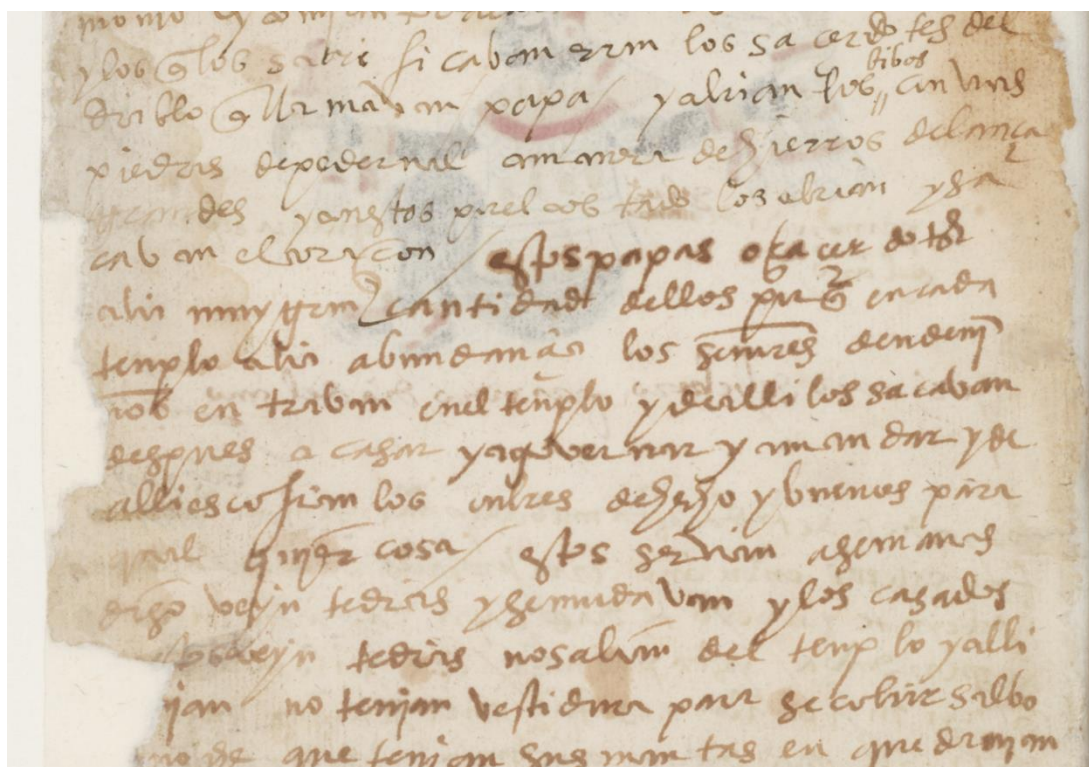 y los q̃ los sacrificaban eran los sacerdotes del
diablo q̃ llamavan papa / y abrian los cativos con unas
piedras de pedernal a manera de hierros de lança
grandes y con estos por el costado los abrian y sa
cavan el coraçon / estos papas o sacerdotes
avia muy gran cantidad dellos porq̃ en cada
templo avia abundançia los señores dende niñ
ios entravan en el templo y de alli los sacavan
despues a casar y a governar y a mandar y de
alli escojian los onbres de hecho y buenos para
qual quier cosa / estos servian a semanas
digo veyntedias y se mudavan y los casados
veyn tedias no salian del templo y alli
no tenjan vestidura para se cobrir salbo
que tenjan sus mantas en que dormjan